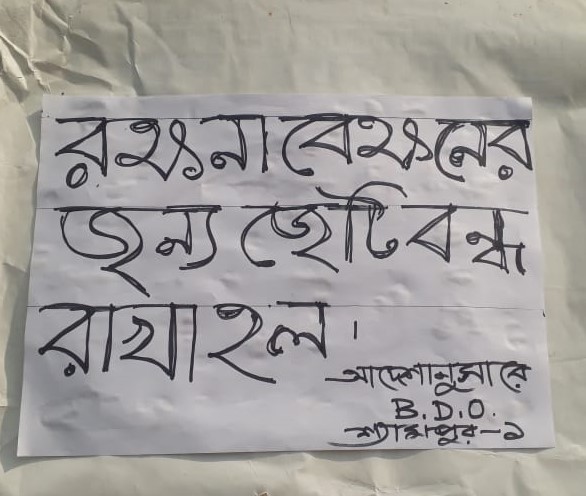 রক্ষনাবেক্ষনের
জন্য জেটি বন্ধ
রাখা হল।
আদেশানুসারে
B.D.O.
শ্যামপুর-১